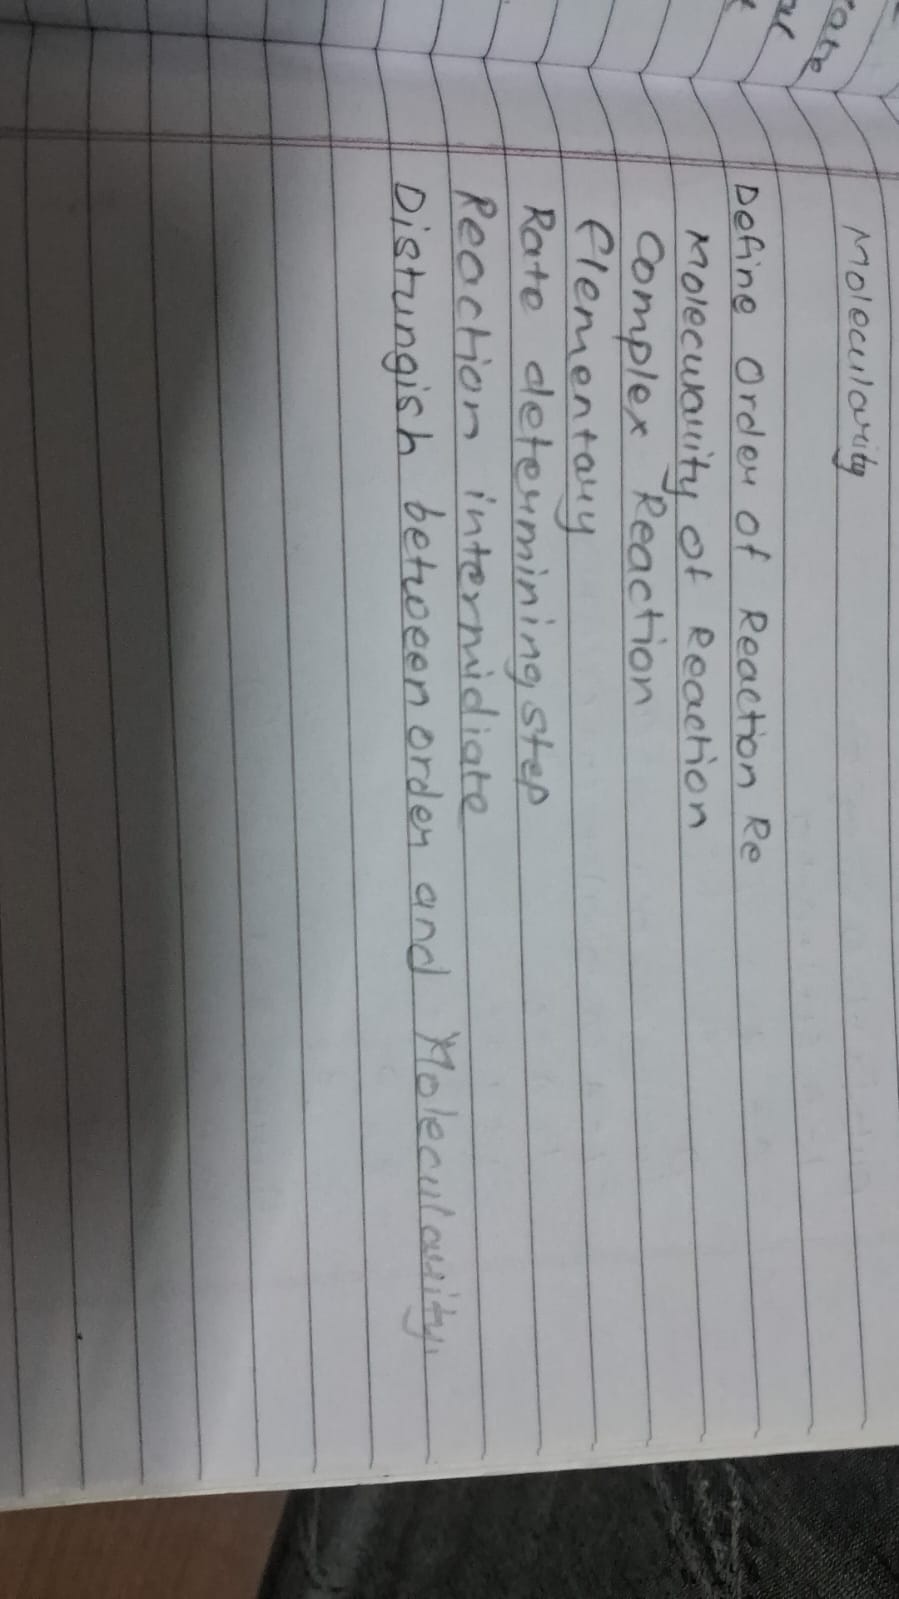 Molecularity
Define Order of Reaction Re
Molecularity of Reaction
Complex Reaction
Elementary
Rate determining step
Reaction intermidiate
Distungish between order and Molecularity.